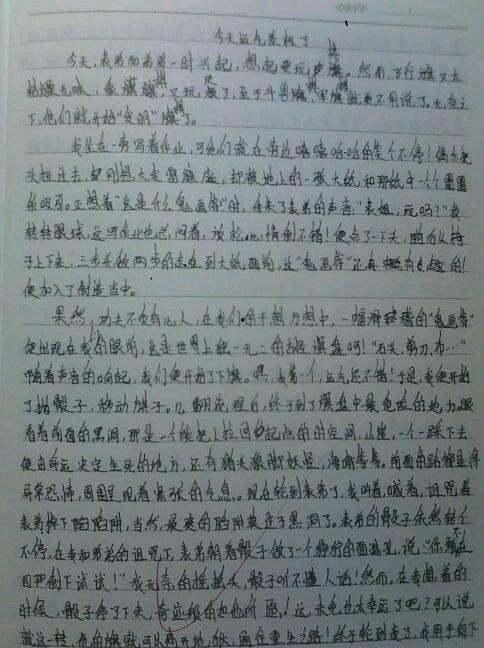 今天运气差极了
今天,表弟和弟弟一时兴起,想起要玩步棋。然而,飞行棋又太
枯燥无味,象棋棋,又玩腻了,至于斗兽棋,军棋就更不用说了。无奈之
下,他们就开始"发明"棋了。
我坐在一旁写着作业,可他们就在旁边嘻嘻哈哈的笑个不停!偶尔把
头扭过去,
却被地上的一张大纸和那纸中一个个圆圈
所吸引。正想着"这是什么鬼画符"时,传来了表弟的声音:"表姐,玩吗?"我
转转眼球,这写作业也怎闷着,放松一下,情倒不错!便点了一下头,
从椅
子上下来,三步并做两步的走到大纸面前,这"鬼画符"还真挺有趣的!
便加入了制造当中。
果然,功夫不负有心人,在我们的千想万想中,一幅滑稽的"鬼画符"
便出现在我们的眼前,这是世界上独一无二的
棋盘呵!"石头,剪刀,布…"
随着声音的响起,我们便开始了下棋。嘿,我第一个,运气还不错!于是,我便开始
了抛骰子,移动棋子。几翻花程自,终于到了棋盘中最危险的地方。眼
看着前面的黑洞,那是一个能把人拉回到起点的时空间,
一个一踩下去
便由命运决定生死的地方,还有猪头狼脚妖怪,海啸等等。前面的路程显得
异常恐怖,周围呈现着紧张的气息。现在轮到表弟了,我叫着,喊着,诅咒着
表弟掉下陷陷阱,当然,最爽的陷阱莫过于黑洞了。表弟的骰子依然转个
不停,在我和弟弟的诅咒下,表弟朝着骰子做了个狰狞的面孔,说:"你敢不
四把倒下试试!"我无奈的摇摇头,骰子听不懂人话!然而,在我想着的
时候,骰子停了下来,奇迹般的
他听愿,!这未免也太幸运了吧?可以说
就这一转,他的棋就可以离开地狱,通往重生之路!终于轮到我了,我用手向下